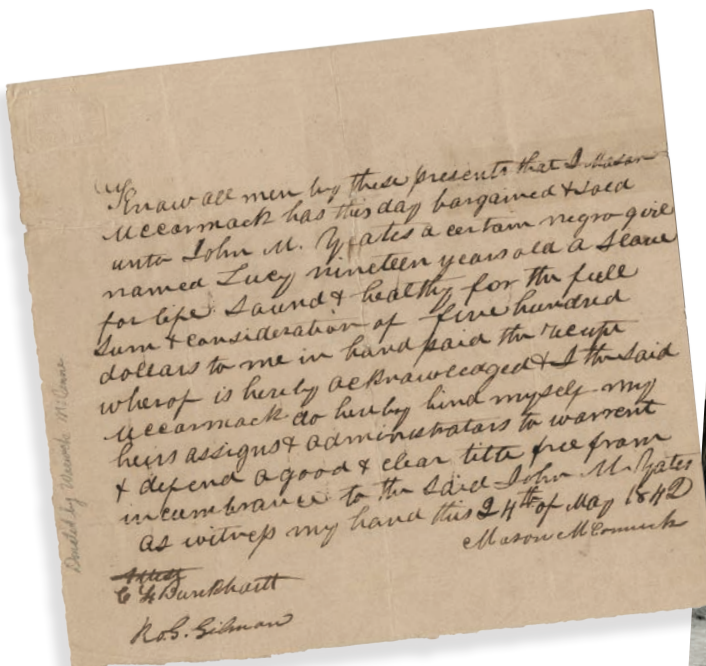 Know all men by these presents that I Mason
McCormack has this day bargained & sold
unto John M. Yeates a certain negro girl
named Lucy nineteen years old a Slave
for life Sound & healthy for the full
Sum & consideration of five hundred
dollars to me in hand paid the receipt
wherof is hereby acknowledged & I the said
McCormack do hereby bind myself my
heirs assigns & administrators to warrent
& defend a good & clear title free from
incumbrance to the said John M. Yates
as witness my hand this 24th of May 1842
Mason McCormick
Attest
Burkhartt
Ro. S. Gilman
Donated by